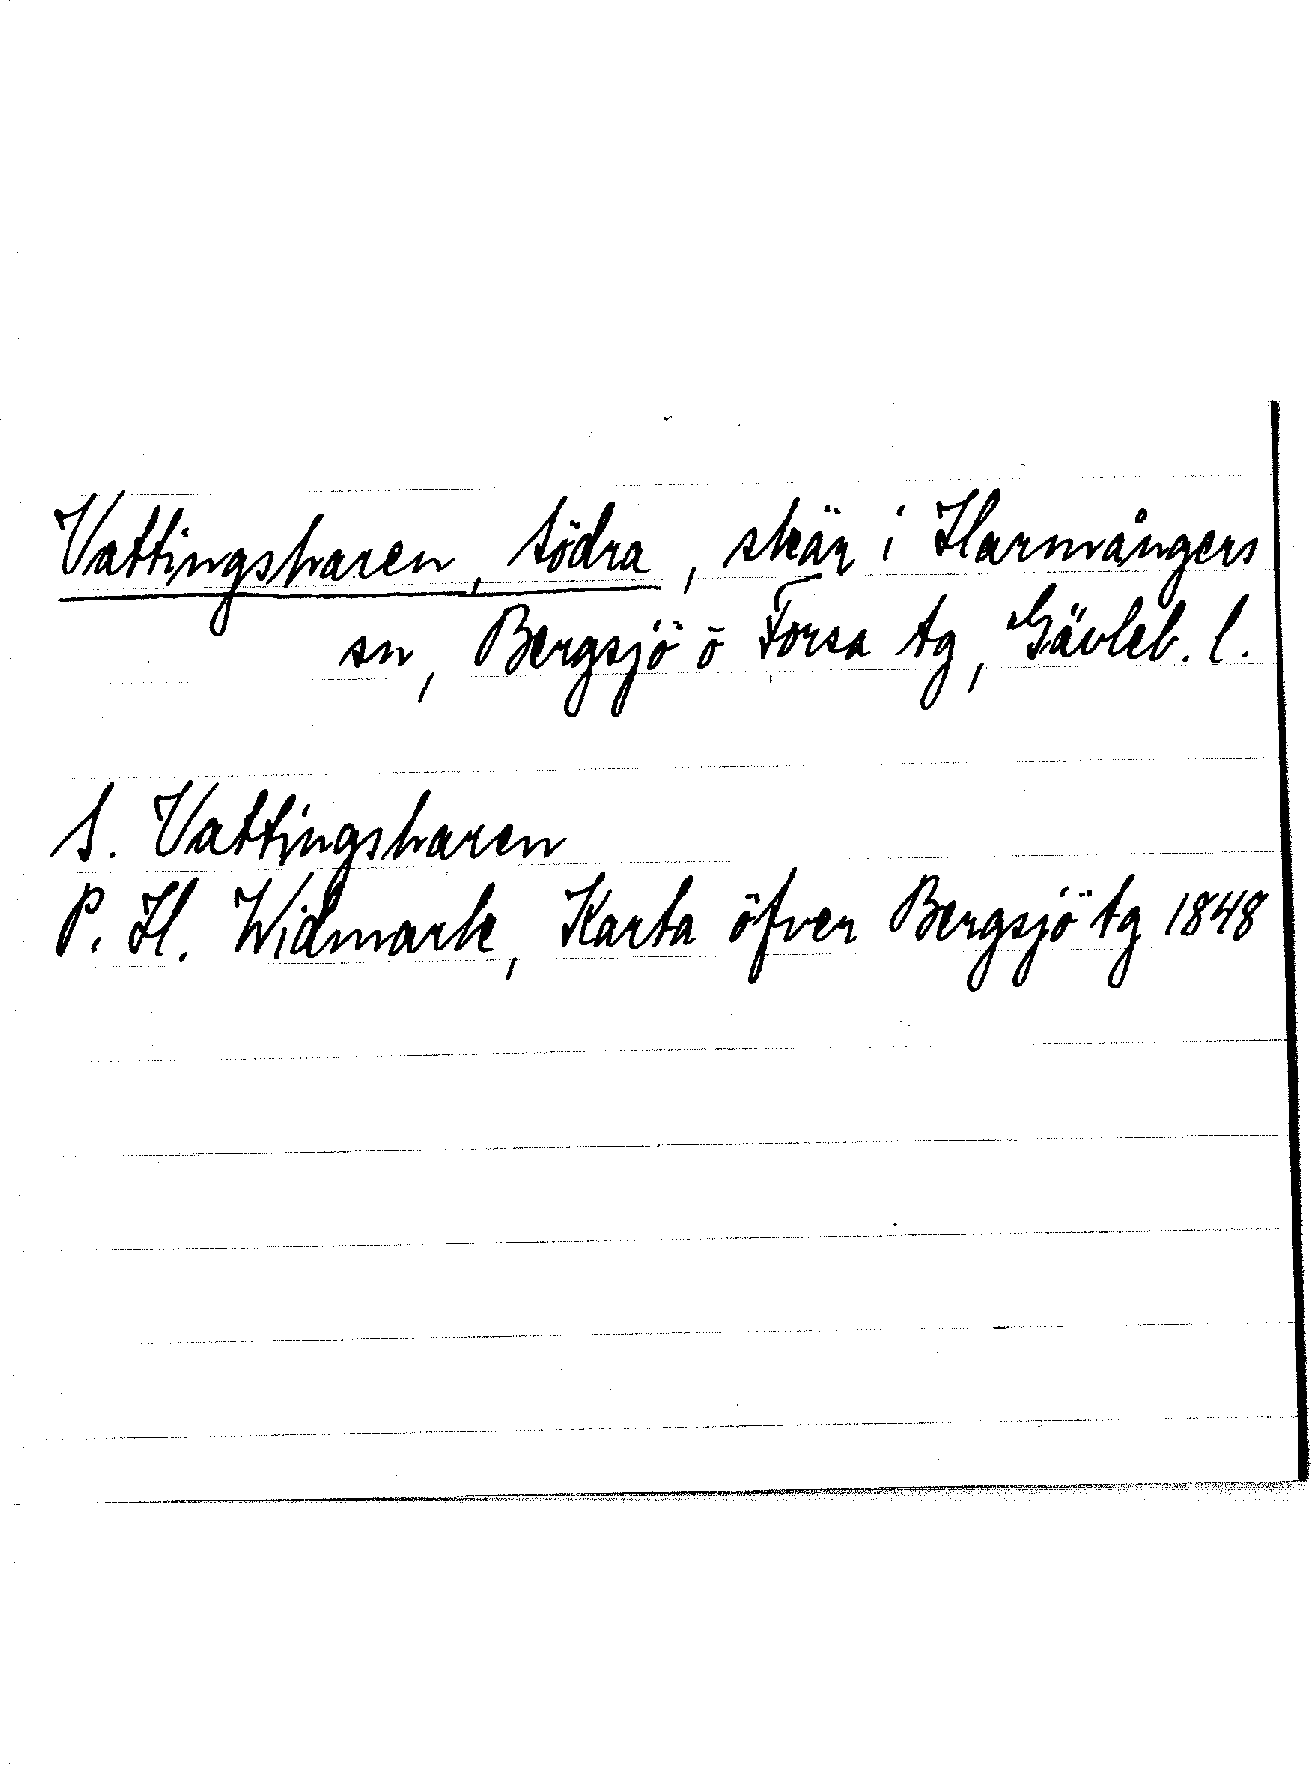 Vattingsharen, södra, skär i Harmångers
sn, Bergsjö o Forsa tg, Gävleb. l.
S. Vattingsharen
P. H. Widmark, Karta öfver Bergsjö tg 1848